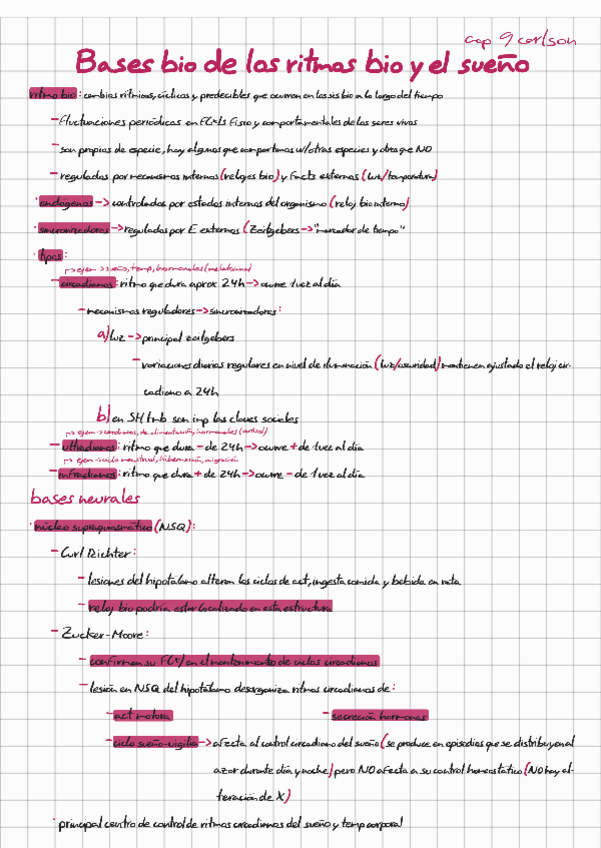 cap 9 carlson
Bases bio de los ritmos bio y el sueño
ritmo bio: cambios rítmicos, cíclicos y predecibles que ocurren en los sis bio a lo largo del tiempo
- Fluctuaciones periódicas en FCxls fisio y comportamentales de los seres vivos
- son propios de especie, hay algunos que compartimos w/otras especies y otros que NO
- regulados por mecanismos internos (relojes bio) y Facts externos (luz/temperatura)
· endógenos -> controlados por estados internos del organismo (reloj bio interno)
· sincronizadores -> regulados por E externos (Zeitgebers -> "marcador de tiempo"
· tipos:
ejem -> sueño, temp, hormonales (melatonina)
- circadianos: ritmo que dura aprox 24h -> ocurre 1 vez al día
- mecanismos reguladores -> sincronizadores:
a) luz -> principal zeitgebers
- variaciones diarias regulares en nivel de iluminación (luz/oscuridad) mantienen ajustado el reloj cir-
cadiano a 24h
b) en SH tmb son imp las claves sociales
ejem -> cardiacos, de alimentación, hormonales (cortisol)
- ultradianos: ritmo que dura - de 24h -> ocurre + de 1 vez al día
ejem -> ciclo menstrual, hibernación, migración
- infradianos: ritmo que dura + de 24h -> ocurre - de 1 vez al día
bases neurales
· núcleo supraquiasmático (NSQ):
- Curl Richter:
- lesiones del hipotálamo alteran los ciclos de act, ingesta comida y bebida en rata
- reloj bio podría estar localizado en esta estructura
- Zucker-Moore:
- confirman su FCx/ en el mantenimiento de ciclos circadianos
- lesión en NSQ del hipotálamo desorganiza ritmos circadianos de:
- act motora - secreción hormonas
- ciclo sueño-vigilia -> afecta al control circadiano del sueño (se produce en episodios que se distribuyen al
azar durante día y noche) pero NO afecta a su control homeostático (NO hay al-
teración de X)
· principal centro de control de ritmos circadianos del sueño y temp corporal